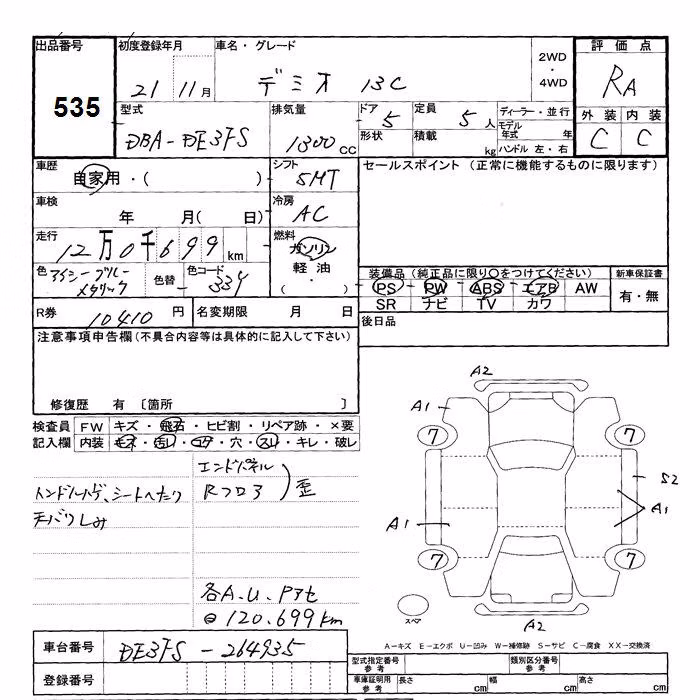 出品番号 初度登録年月 車名・グレード 2WD・4WD 評価点
535 21 11月 デミオ 13C RA
型式 排気量 ドア 定員 ディーラー・並行 外装 内装
DBA-DE3FS 1300cc 5 5人 モデル年式 年 C C
形状 積載 kg ハンドル 左・右
車歴 自家用・( ) シフト 5MT セールスポイント (正常に機能するものに限ります)
車検 年 月( 日) 冷房 AC
走行 12万0千699km 燃料 ガソリン 軽油・( )
色 アイシーブルーメタリック 色替 色コード 33Y
装備品 (純正品に限り○をつけてください) 新車保証書
PS・PW・ABS・エアB AW 有・無
SR ナビ TV カワ
R券 10410円 名変期限 月 日 後日品
注意事項申告欄 (不具合内容等は具体的に記入して下さい)
修復歴 有 〔箇所 〕
検査員記入欄 FW キズ・飛石・ヒビ割・リペア跡・×要
内装 キズ・汚レ・コゲ・穴・スレ・キレ・破レ
エンドパネル
Rフロア 歪
シートへたり
天バリしみ
各A.U.Pアセ
120.699km
A2
A1
7 7
S2
A1 A1
7 7
スペア
A2
A-キズ E-エクボ U-凹み W-補修跡 S-サビ C-腐食 XX-交換済
車台番号 DE3FS-264935
登録番号
型式指定番号 参考 類別区分番号 参考
車庫証明用 参考 長さ cm 幅 cm 高さ cm